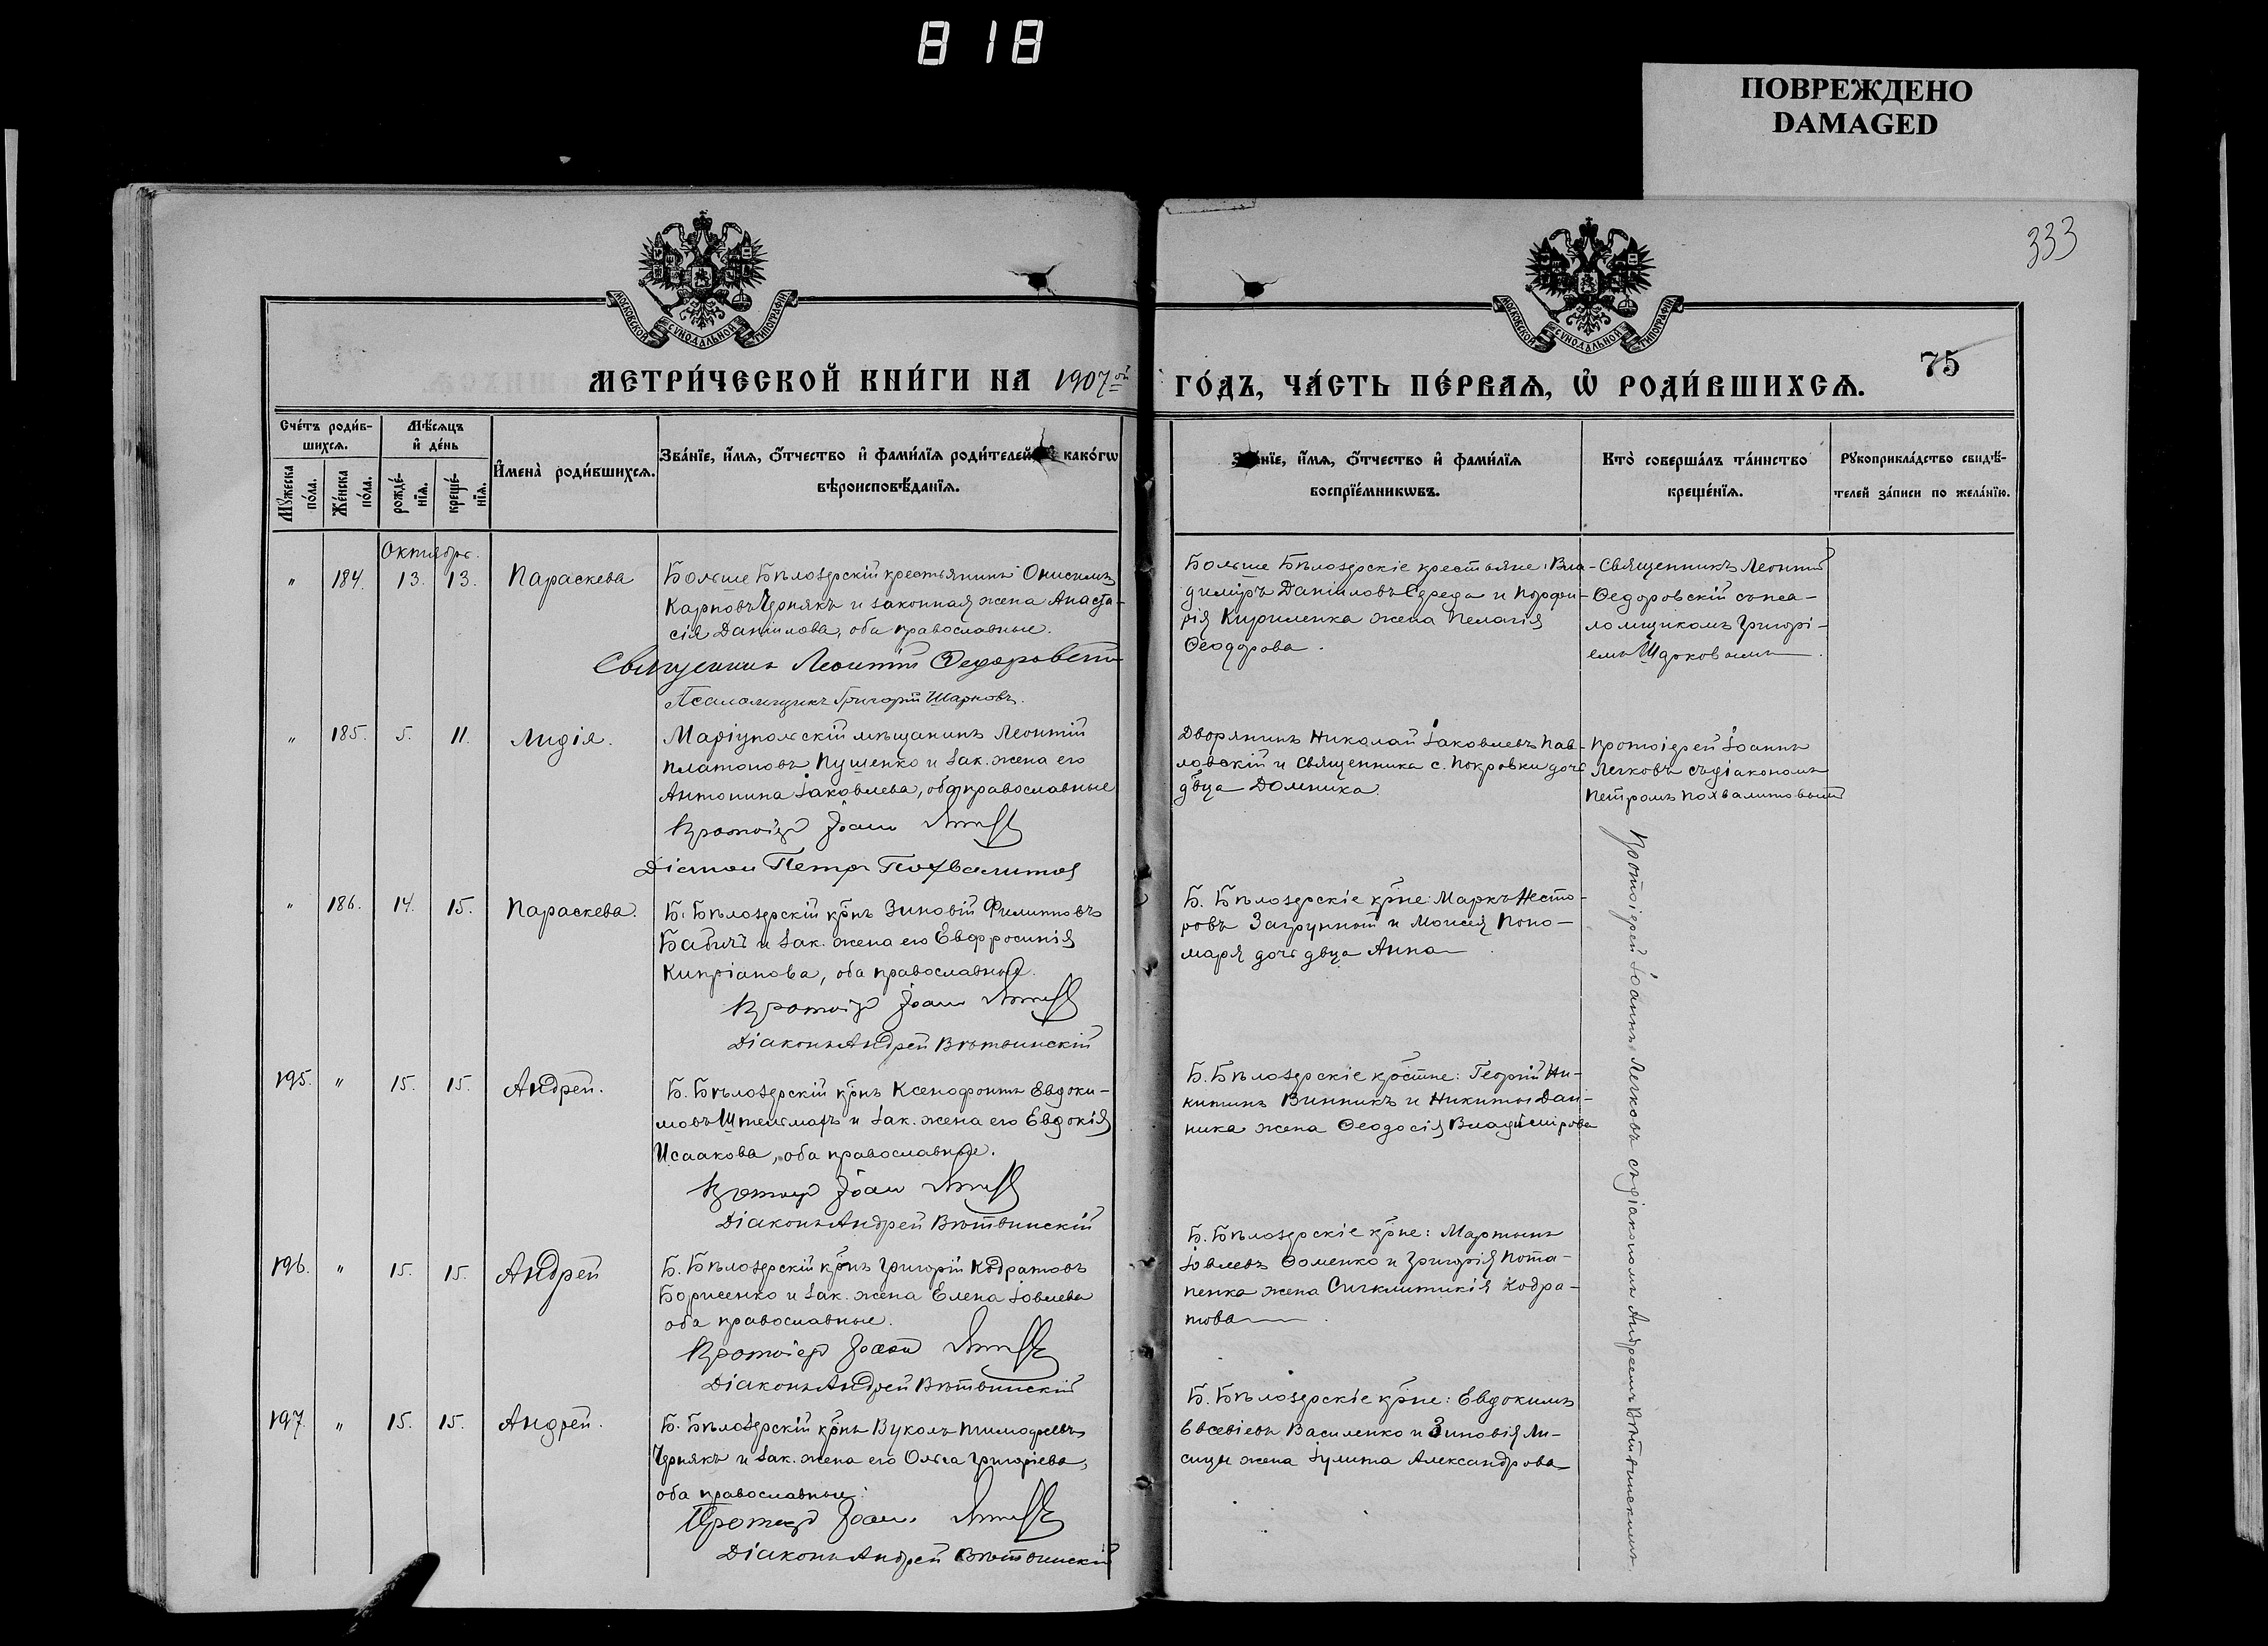 818
ПОВРЕЖДЕНО
DAMAGED
333
МОСКОВСКОЙ СѴНОДАЛЬНОЙ ТИПОГРАФІИ
МОСКОВСКОЙ СѴНОДАЛЬНОЙ ТИПОГРАФІИ
75
МЕТРИ́ЧЕСКОЙ КНИ́ГИ НА 1907ой ГО́ДЪ, ЧА́СТЬ ПЕ́РВАѦ, Ѽ РОДИ́ВШИХСѦ.
Сче́тъ роди́в-
шихсѧ.
Мѣ́сѧцъ
и҆ де́нь
Мꙋ́жеска
по́ла.
Же́нска
по́ла.
рожде́-
нїѧ.
креще́-
нїѧ.
И҆мена̀ роди́вшихсѧ.
Зва́нїе, и҆́мѧ, ѻ҆́тчество и҆ фами́лїѧ роди́телей какогѡ
вѣроисповѣ́данїѧ.
нїе, и҆́мѧ, ѻ҆́тчество и҆ фами́лїѧ
воспрїе́мникѡвъ.
Кто̀ соверша́лъ та́инство
креще́нїѧ.
Рꙋкоприкла́дство свидѣ́-
телей за́писи по жела́нїю.
Октябрь.
" 184. 13. 13. Параскева
Больше Бѣлозерскій крестьянинъ Онисимъ
Карповъ Чернякъ и законная жена Анаста-
сія Даніилова, оба православные.
Священникъ Леонтій Федоровскій
Псаломщикъ Григорій Шарковъ.
Больше Бѣлозерскіе крестьяне: Вла-
димиръ Данииловъ Середа и Порфи-
рія Кириленка жена Пелагія
Ѳеодорова.
Священникъ Леонтій
Ѳедоровскій съ пса-
ломщикомъ Григорі-
емъ Шарковымъ.
" 185. 5. 11. Лидія.
Маріупольскій мѣщанинъ Леонтій
Платоновъ Пущенко и зак. жена его
Антонина Іаковлева, оба православные
Протоіер Іоанн
Діакон Петр Похвалитов
Дворянинъ Николай Іаковлевъ Пав-
ловскій и священника с. Покровки дочь
двца Домника.
Протоіерей Іоаннъ
Легковъ съ діакономъ
Петромъ Похвалитовымъ
" 186. 14. 15. Параскева.
Б. Бѣлозерскій крнъ Зиновій Филипповъ
Бабичъ и зак. жена его Евфросинія
Кипріанова, оба православные.
Протоіер Іоанн
Діаконъ Андрей Вѣтвинскій
Б. Бѣлозерскіе крне: Маркъ Несто-
ровъ Загрупный и Моисея Поно-
маря дочь двца Анна
195. " 15. 15. Андрей.
Б. Бѣлозерскій крнъ Ксенофонтъ Евдоки-
мовъ Штельмахъ и зак. жена его Евдокія
Исаакова, оба православные.
Протоіер Іоанн
Діаконъ Андрей Вѣтвинскій
Б. Бѣлозерскіе крстне: Георгій Ни-
китинъ Винникъ и Никиты Дан-
ника жена Ѳеодосія Владимірова
196. " 15. 15. Андрей
Б. Бѣлозерскій крнъ Григорій Кодратовъ
Борисенко и зак. жена Елена Іовлева
оба православные.
Протоіер Іоанн
Діаконъ Андрей Вѣтвинскій
Б. Бѣлозерскіе крне: Мартинъ
Іовлевъ Ѳоменко и Григорія Пота-
пенка жена Сигклитикія Кодра-
това
197. " 15. 15. Андрей.
Б. Бѣлозерскій крнъ Вуколъ Тимофеевъ
Чернякъ и зак. жена его Ольга Григоріева,
оба православные.
Протоіер Іоанн
Діаконъ Андрей Вѣтвинскій
Б. Бѣлозерскіе крне: Евдокимъ
Евсевіевъ Василенко и Зиновія Ли-
сицы жена Іулита Александрова
Протоіерей Іоаннъ Легковъ съ діакономъ Андреемъ Вѣтвинскимъ